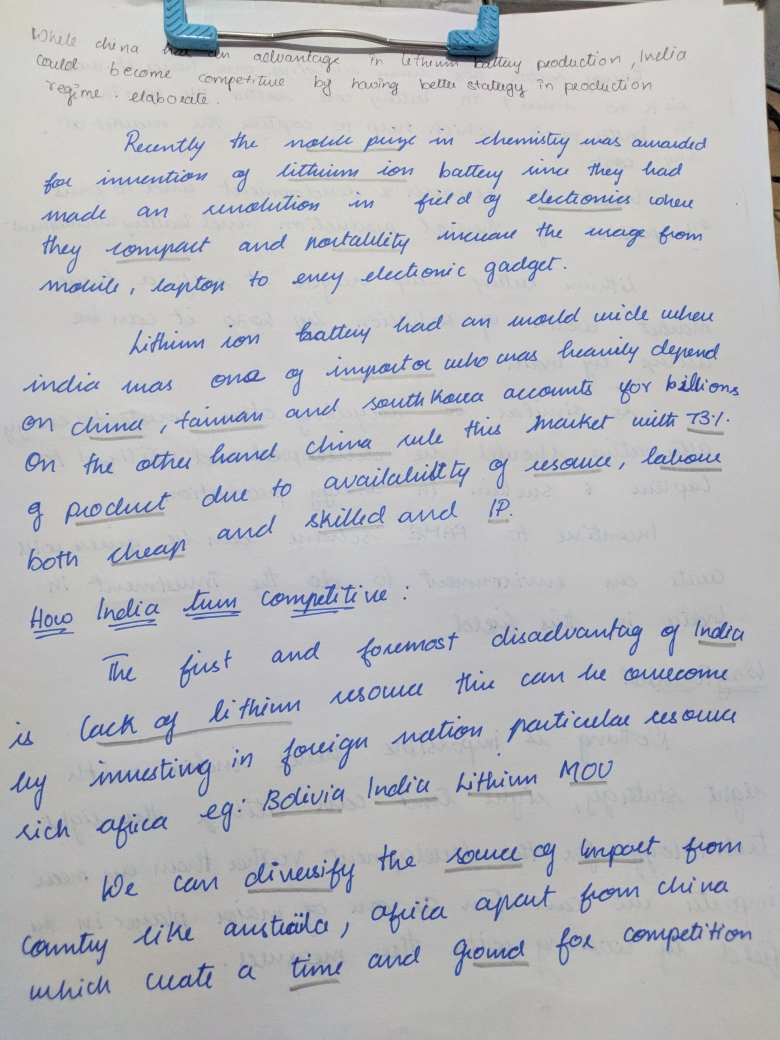 While china has an advantage in lithium battery production, India
could become competitive by having better stategy in production
regime. elaborate.
Recently the noble prize in chemistry was awarded
for invention of lithium ion battery since they had
made an revolution in field of electronics where
they compact and portability increase the usage from
mobile, laptop to every electronic gadget.
Lithium ion battery had an world wide when
india was one of importor who was heavily depend
on china, taiwan and south korea accounts for billions
On the other hand china rule this market with 73%.
of product due to availability of resource, labour
both cheap and skilled and IP.
How India turn competitive :
The first and foremost disadvantag of India
is lack of lithium resource this can be overcome
by investing in foreign nation particular resource
rich africa eg: Bolivia India Lithium MOU
We can diversify the source of import from
country like austraila, africa apart from china
which create a time and ground for competition